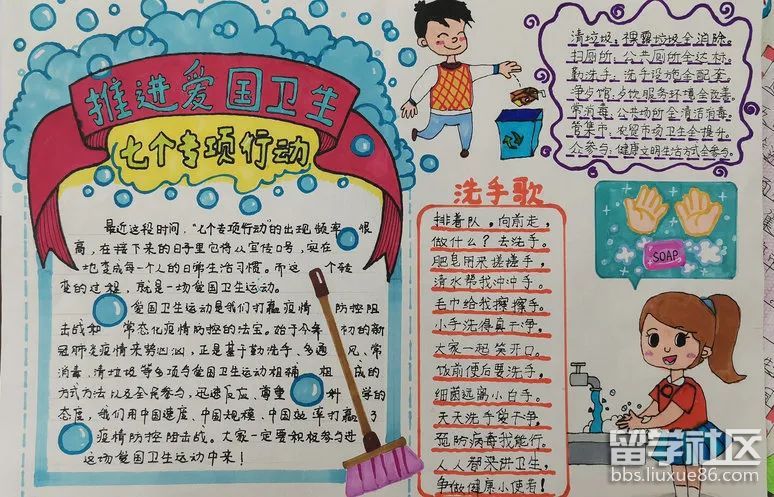 推进爱国卫生
七个专项行动
最近这段时间，“七个专项行动”的出现频率很
高，在接下来的日子里它将从宣传口号，实在
地变成每一个人的日常生活习惯。而这个转
变的过程，就是一场爱国卫生运动。
爱国卫生运动是我们打赢疫情防控阻
击战和常态化疫情防控的法宝。始于今年初的新
冠肺炎疫情来势汹汹，正是基于勤洗手、多通风、常
消毒、清垃圾等多项与爱国卫生运动相辅相成的
方式方法以及全民参与，迅速反应、尊重科学的
态度，我们用中国速度、中国规模、中国效率打赢了
疫情防控阻击战。大家一定要积极参与进
这场爱国卫生运动中来！
清垃圾，裸露垃圾全消除。
扫厕所，公共厕所全达标。
勤洗手，洗手设施全配套。
净餐馆，餐饮服务环境全改善。
常消毒，公共场所全清洁消毒。
管集市，农贸市场卫生全提升。
众参与，健康文明生活方式全参与。
洗手歌
排着队，向前走，
做什么？去洗手。
肥皂用来搓搓手，
清水帮我冲冲手。
毛巾给我擦擦手，
小手洗得真干净。
大家一起笑开口。
饭前便后要洗手，
细菌远离小白手。
天天洗手袋干净，
预防病毒我能行。
人人都来讲卫生，
争做健康小使者！
SOAP
留学社区
bbs.liuxue86.com